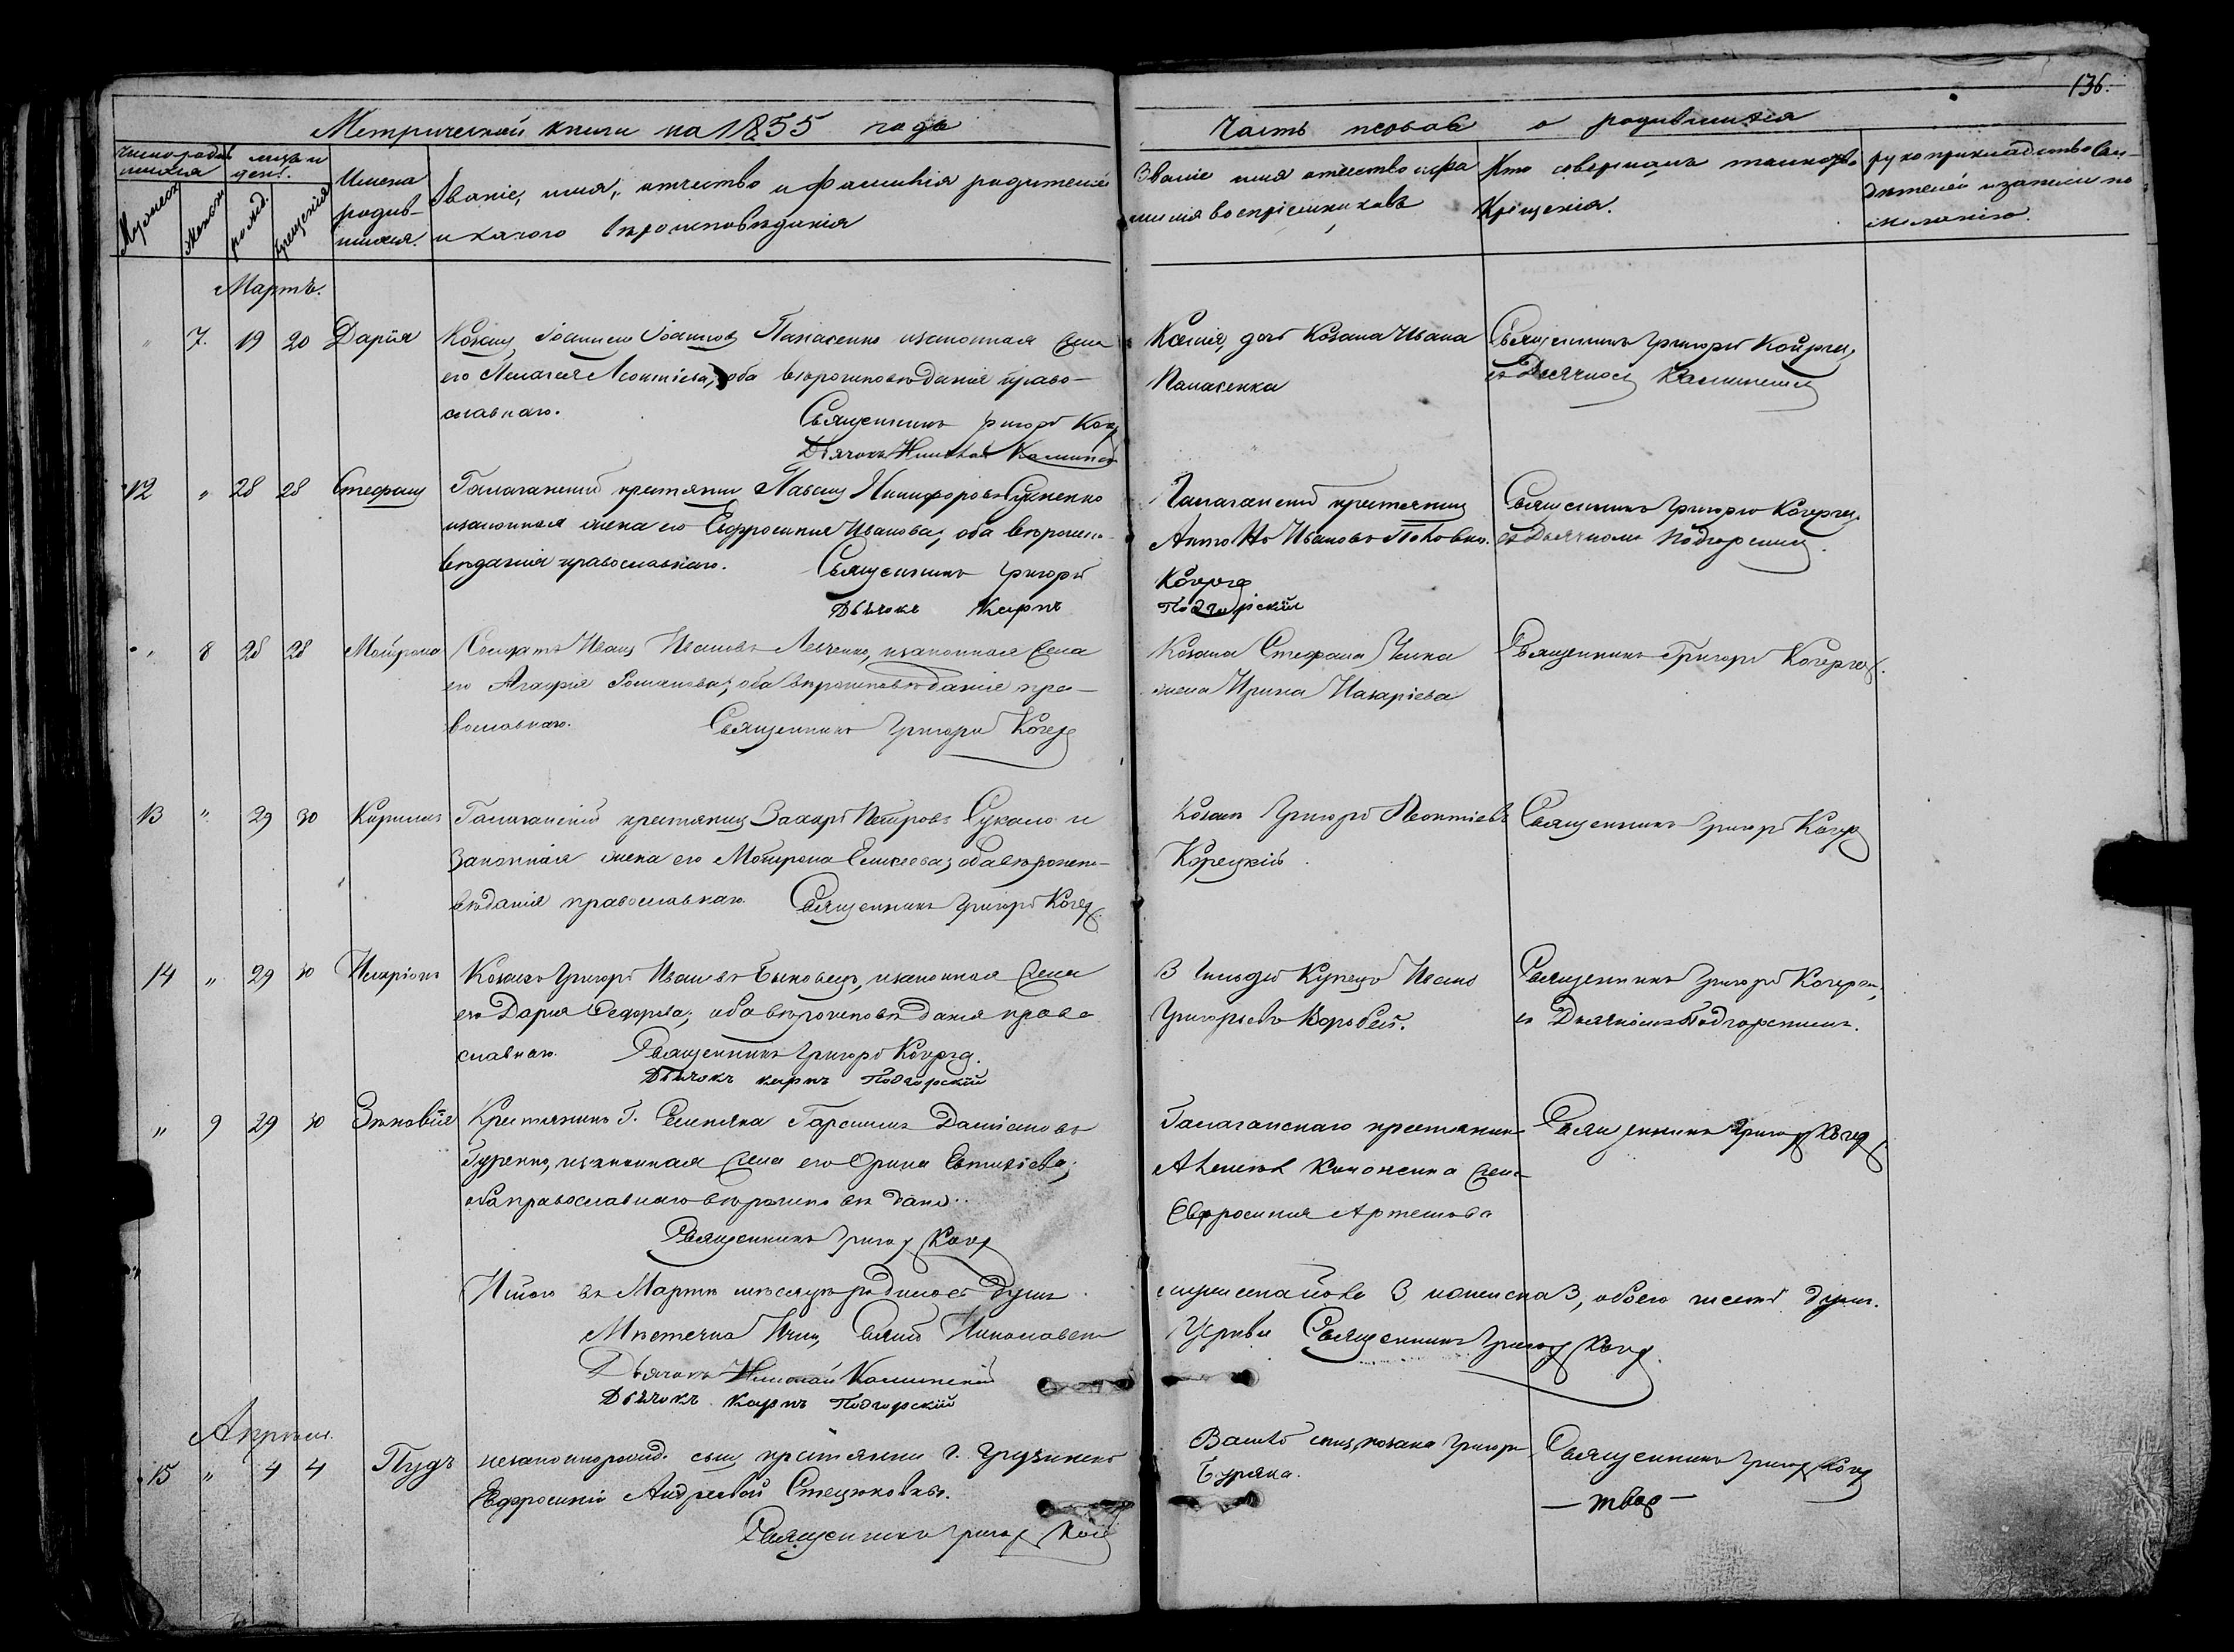 136.
Метрической книги на 1855 годъ
Часть первая о родившихся
Число родившихся
Мужеска
женска
мѣсяцъ и день.
рожд.
крещенія
Имена родив-
шихся.
Званіе, имя, отчество и фамилія родителей
и какого вѣроисповѣданія
Званіе имя отчество и фа
милія воспріемниковъ
Кто совершалъ таинство
Крещенія.
рукоприкладство сви-
дѣтелей записи по
желанію.
Мартъ.
" 7. 19 20 Дарія
Козакъ Іоаннъ Іоанновъ Панасенко и законная жена
его Пелагея Леонтіева, оба вѣроисповѣданія право-
славнаго.
Священникъ Григорій
Дьячокъ Николай Калинск
дочь Козака Ивана
Панасенка
Священникъ Григорій Кочерга,
съ Дьячкомъ Калинскимъ
12 " 28 28 Стефанъ
Галаганскій крестьянинъ Павелъ Никифоровъ
и законная жена его Евфросинія Иванова, оба вѣроиспо-
вѣданія православнаго.
Священникъ Григорій
Дьячокъ Карпъ
Галаганскій крестьянинъ
Антонъ Ивановъ
Кочерга
Подгорскій
Священникъ Григорій Кочерга,
съ Дьячкомъ Подгорскимъ.
" 8 28 28 Матрона
Солдатъ Иванъ Ивановъ Левченко, и законная жена
его Агафія Романова, оба вѣроисповѣданія пра-
вославнаго.
Священникъ Григорій Кочерга
Козака Стефана
жена Ирина Назаріева
Священникъ Григорій Кочерга.
13 " 29 30 Кириллъ
Галаганскій крестьянинъ Захарій Петровъ Сукало и
Законная жена его Матрона Елисеева, оба вѣроиспо-
вѣданія православнаго.
Священникъ Григорій Кочерга.
Козакъ Григорій Леонтіевъ
Корецкій.
Священникъ Григорій Кочерга
14 " 29 30 Иларіонъ
Козакъ Григорій Ивановъ Быковецъ, и законная жена
его Дарія Федорова, оба вѣроисповѣданія право
славнаго.
Священникъ Григорій Кочерга.
Дьячокъ карпъ Подгорскій
3 Гильдіи Купецъ Иванъ
Григорьевъ Воробей.
Священникъ Григорій Кочерга,
съ Дьячкомъ Подгорскимъ.
" 9 29 30 Зиновія
Крестьянинъ Г. Герасимъ Даміановъ
Гуренко, и законная жена его Орина Евтихіева,
оба православнаго вѣроисповѣданія.
Священникъ Григор Кочер
Галаганскаго крестьянина
Алексѣя жена
Евфросинія Артемова
Священникъ Григор Кочер
Итого въ Мартѣ мѣсяцѣ родилось душъ
мужеска пола 3 женска 3, обоего шесть душ.
Николаевск
Церкви Священникъ Григор Кочер.
Дьячокъ Николай Калинскій
Дьячокъ Карпъ Подгорскій
Апрѣль.
15 " 4 4 Пудъ
незаконнорожд. сынъ крестьянки г.
Евфросиніи Андреевой Стецюковны.
Священникъ Григор Коче
сынъ козака Григорія
Буряка.
Священникъ Григор Коче